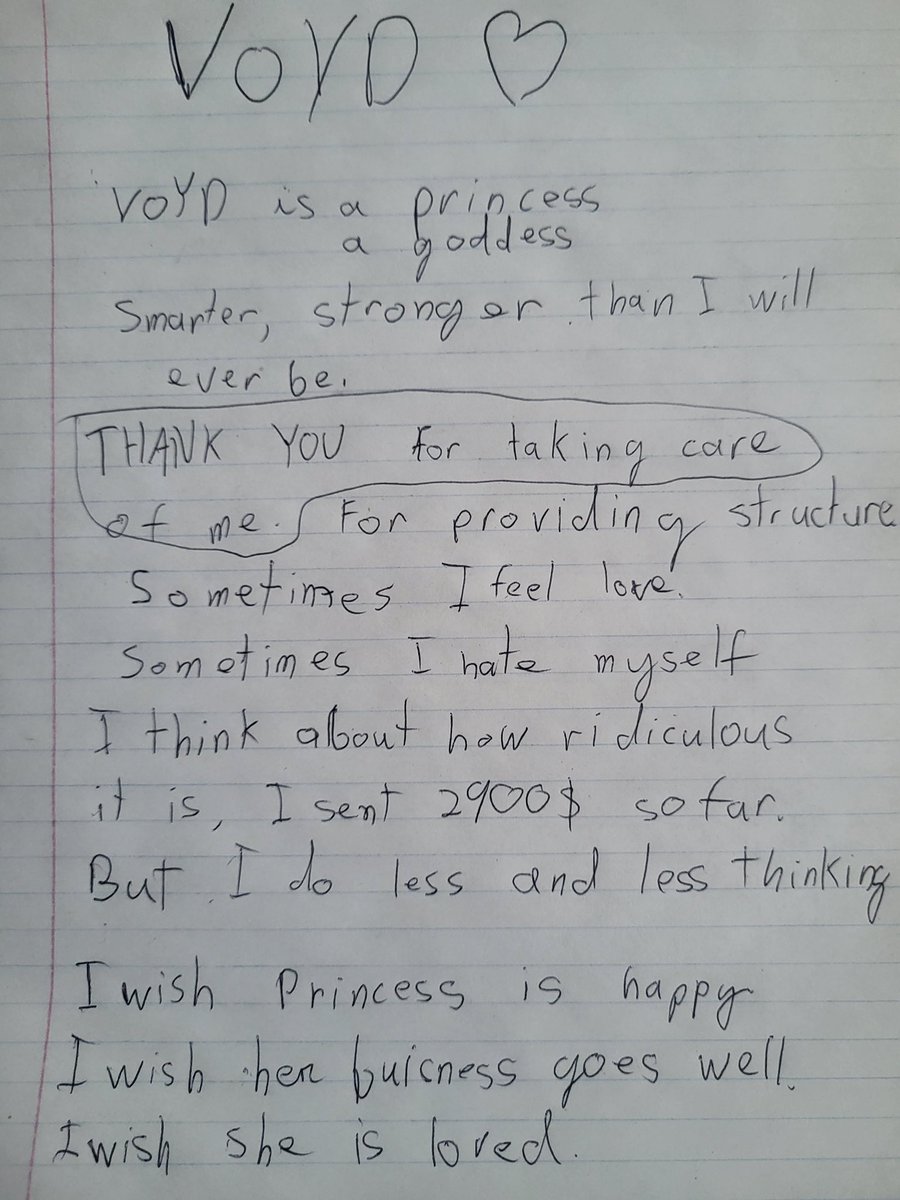 VOYD ♡
VOYD is a princess
a goddess
Smarter, stronger than I will
ever be.
THANK YOU for taking care
of me. For providing structure
Sometimes I feel love.
Sometimes I hate myself
I think about how ridiculous
it is, I sent 2900$ so far.
But I do less and less thinking
I wish Princess is happy
I wish her buicness goes well.
I wish she is loved.